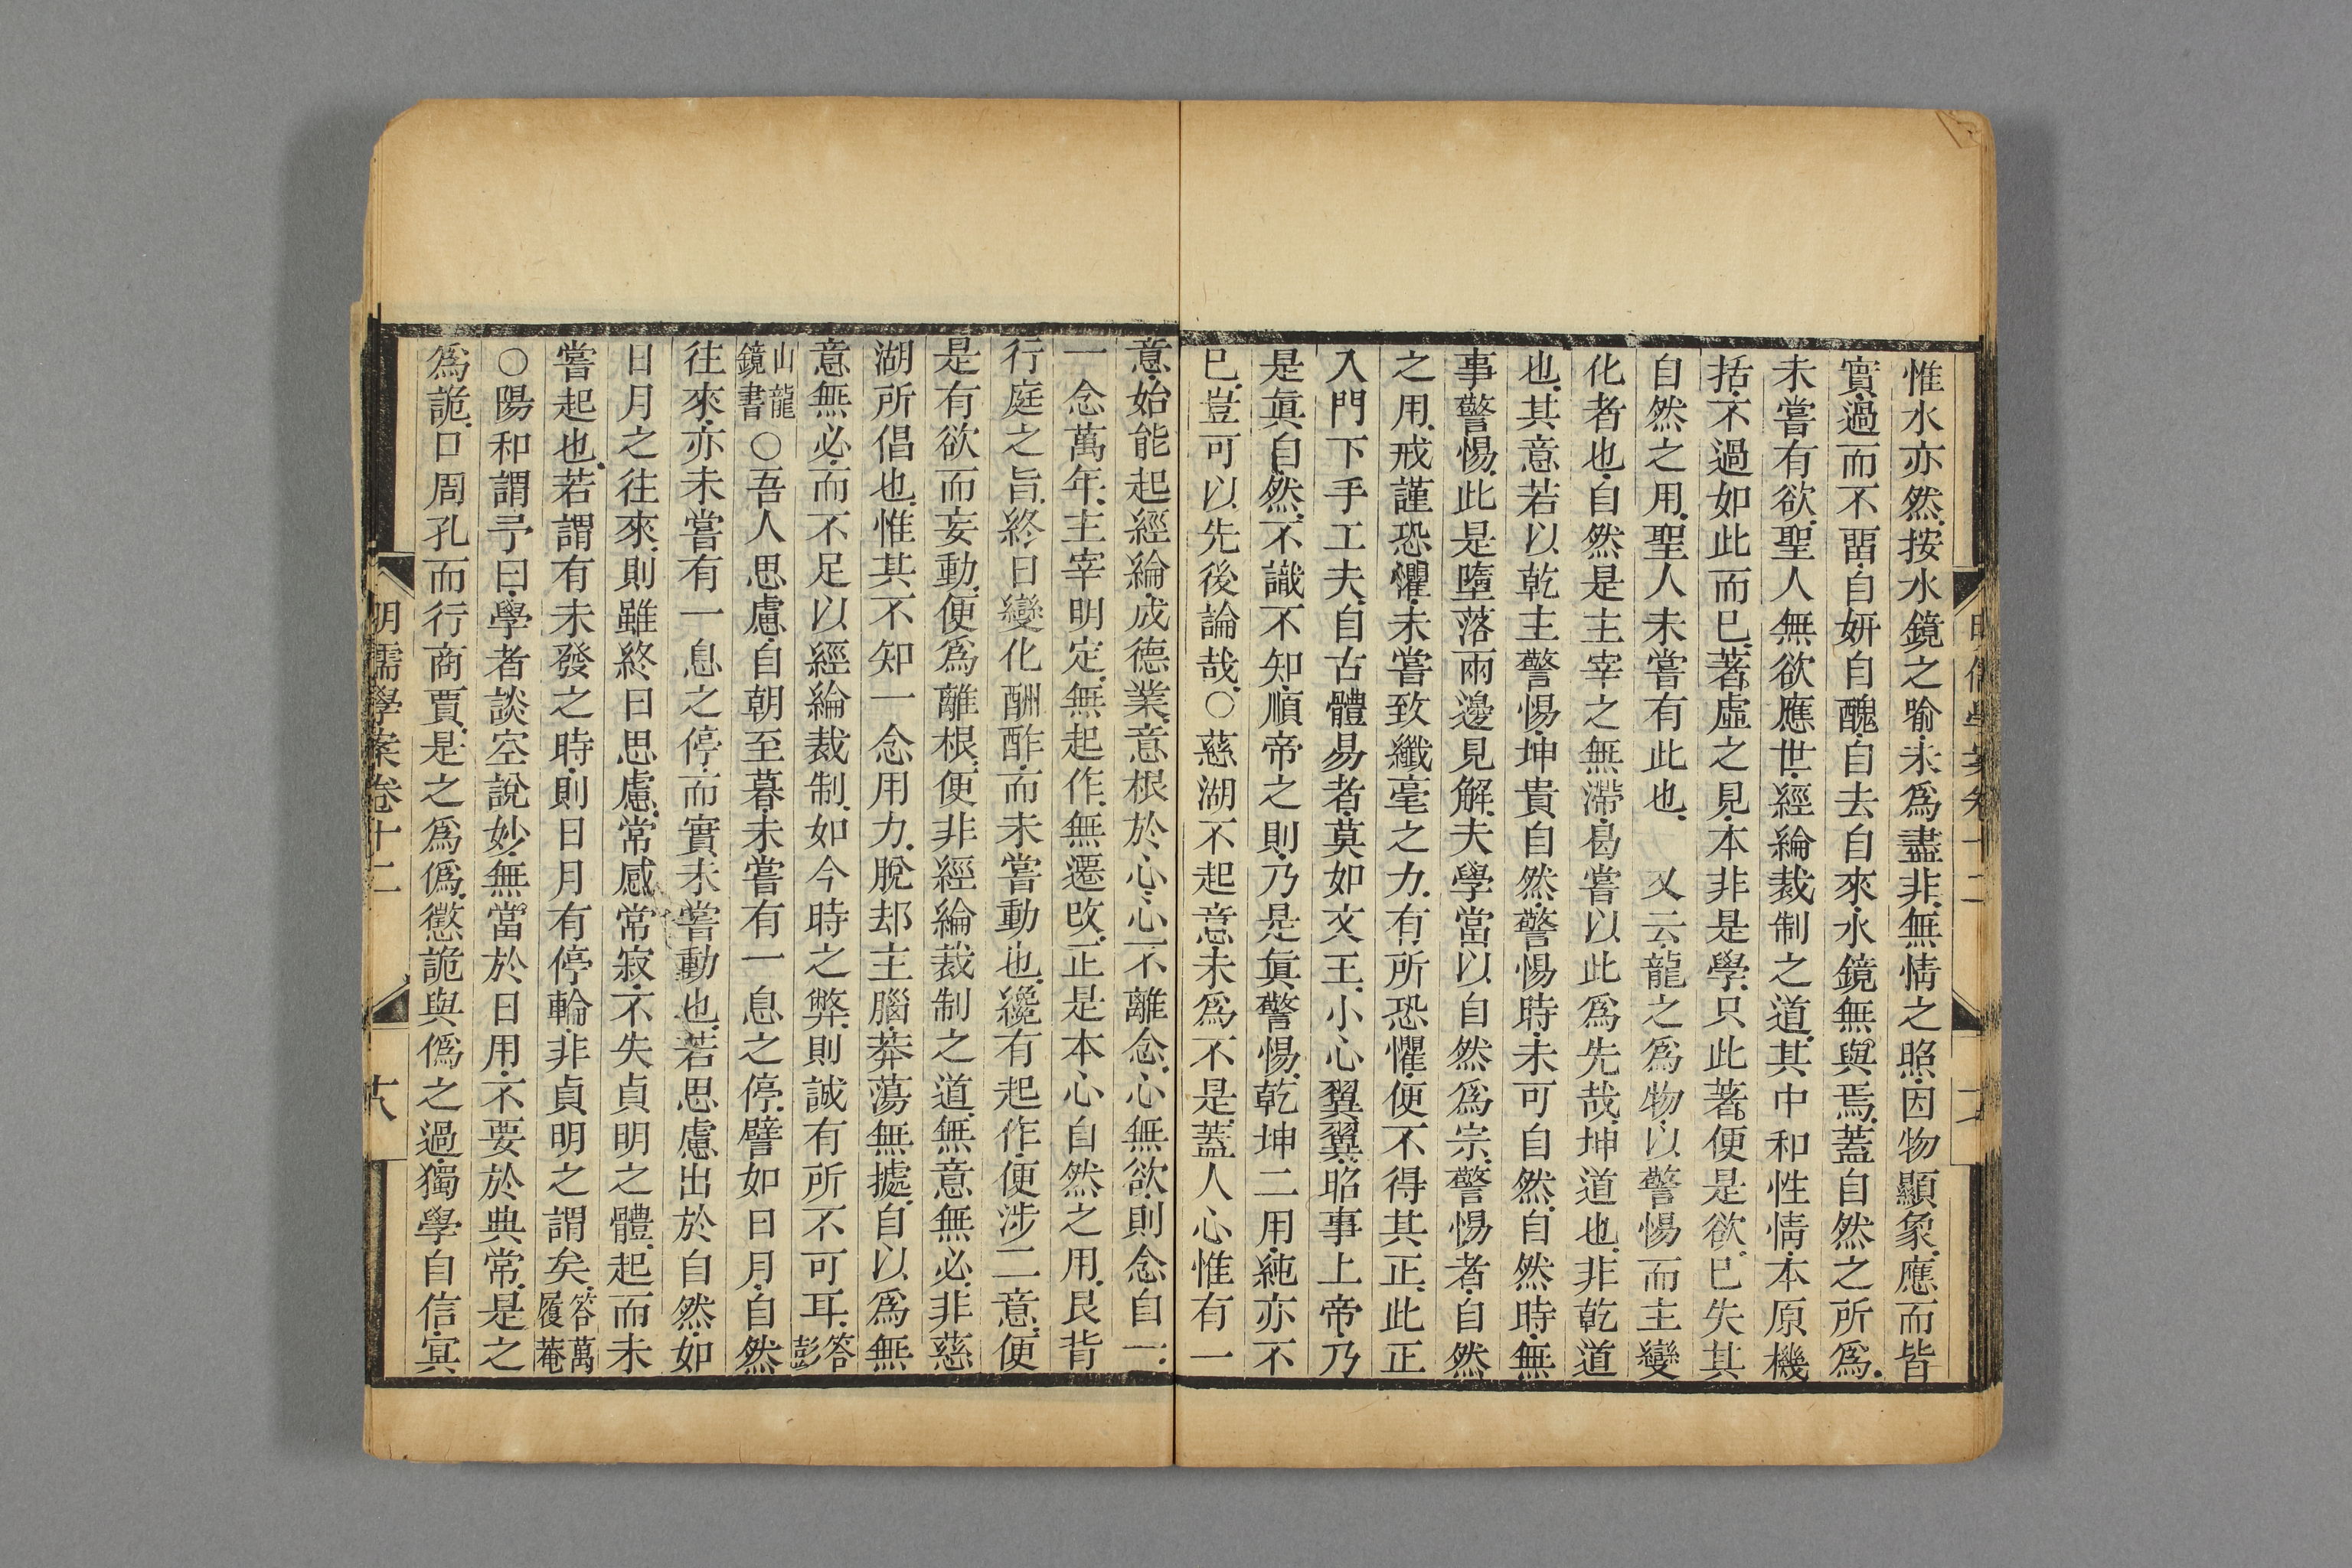 惟水亦然.按水鏡之喻.未爲盡非.無情之照.因物顯象.應而皆
實.過而不畱.自妍自醜.自去自來.水鏡無與焉.蓋自然之所爲.
未嘗有欲.聖人無欲應世.經綸裁制之道.其中和性情.本原機
括.不過如此而已.著虛之見.本非是學.只此著便是欲.已失其
自然之用.聖人未嘗有此也.　又云.龍之爲物.以警惕而主變
化者也.自然是主宰之無滯.曷嘗以此爲先哉.坤道也.非乾道
也.其意若以乾主警惕.坤貴自然.警惕時.未可自然.自然時.無
事警惕.此是墮落兩邊見解.夫學當以自然爲宗.警惕者.自然
之用.戒謹恐懼.未嘗致纖毫之力.有所恐懼.便不得其正.此正
入門下手工夫.自古體易者.莫如文王.小心翼翼.昭事上帝.乃
是眞自然.不識不知.順帝之則.乃是眞警惕.乾坤二用.純亦不
已.豈可以先後論哉.○慈湖不起意.未爲不是.蓋人心惟有一
意.始能起經綸.成德業.意根於心.心不離念.心無欲.則念自一.
一念萬年.主宰明定.無起作.無遷改.正是本心自然之用.艮背
行庭之旨.終日變化酬酢.而未嘗動也.纔有起作.便涉二意.便
是有欲而妄動.便爲離根.便非經綸裁制之道.無意無必.非慈
湖所倡也.惟其不知一念用力.脫却主腦.莽蕩無據.自以爲無
意無必.而不足以經綸裁制.如今時之弊.則誠有所不可耳.答彭
山龍鏡書○吾人思慮.自朝至暮.未嘗有一息之停.譬如日月.自然
往來.亦未嘗有一息之停.而實未嘗動也.若思慮出於自然.如
日月之往來.則雖終日思慮.常感常寂.不失貞明之體.起而未
嘗起也.若謂有未發之時.則日月有停輪.非貞明之謂矣.答萬履菴
○陽和謂予曰.學者談空說妙.無當於日用.不要於典常.是之
爲詭.口周孔而行商賈.是之爲僞.懲詭與僞之過.獨學自信.冥
明儒學案卷十二